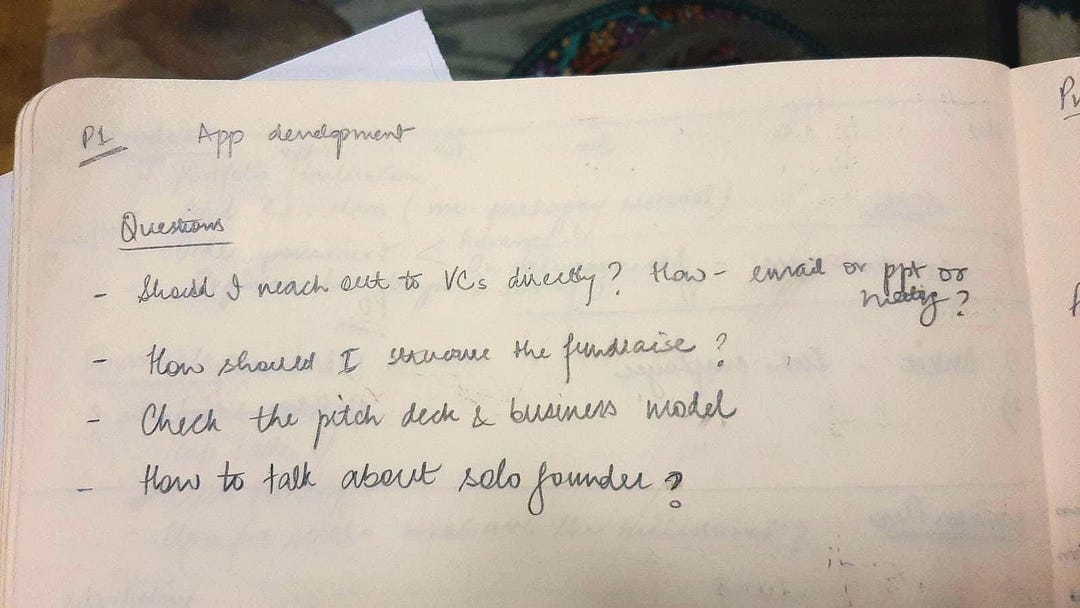 P1 App development
Questions
- Should I reach out to VCs directly? How - email or ppt or
meeting?
- How should I structure the fundraise?
- Check the pitch deck & business model
- How to talk about solo founder?